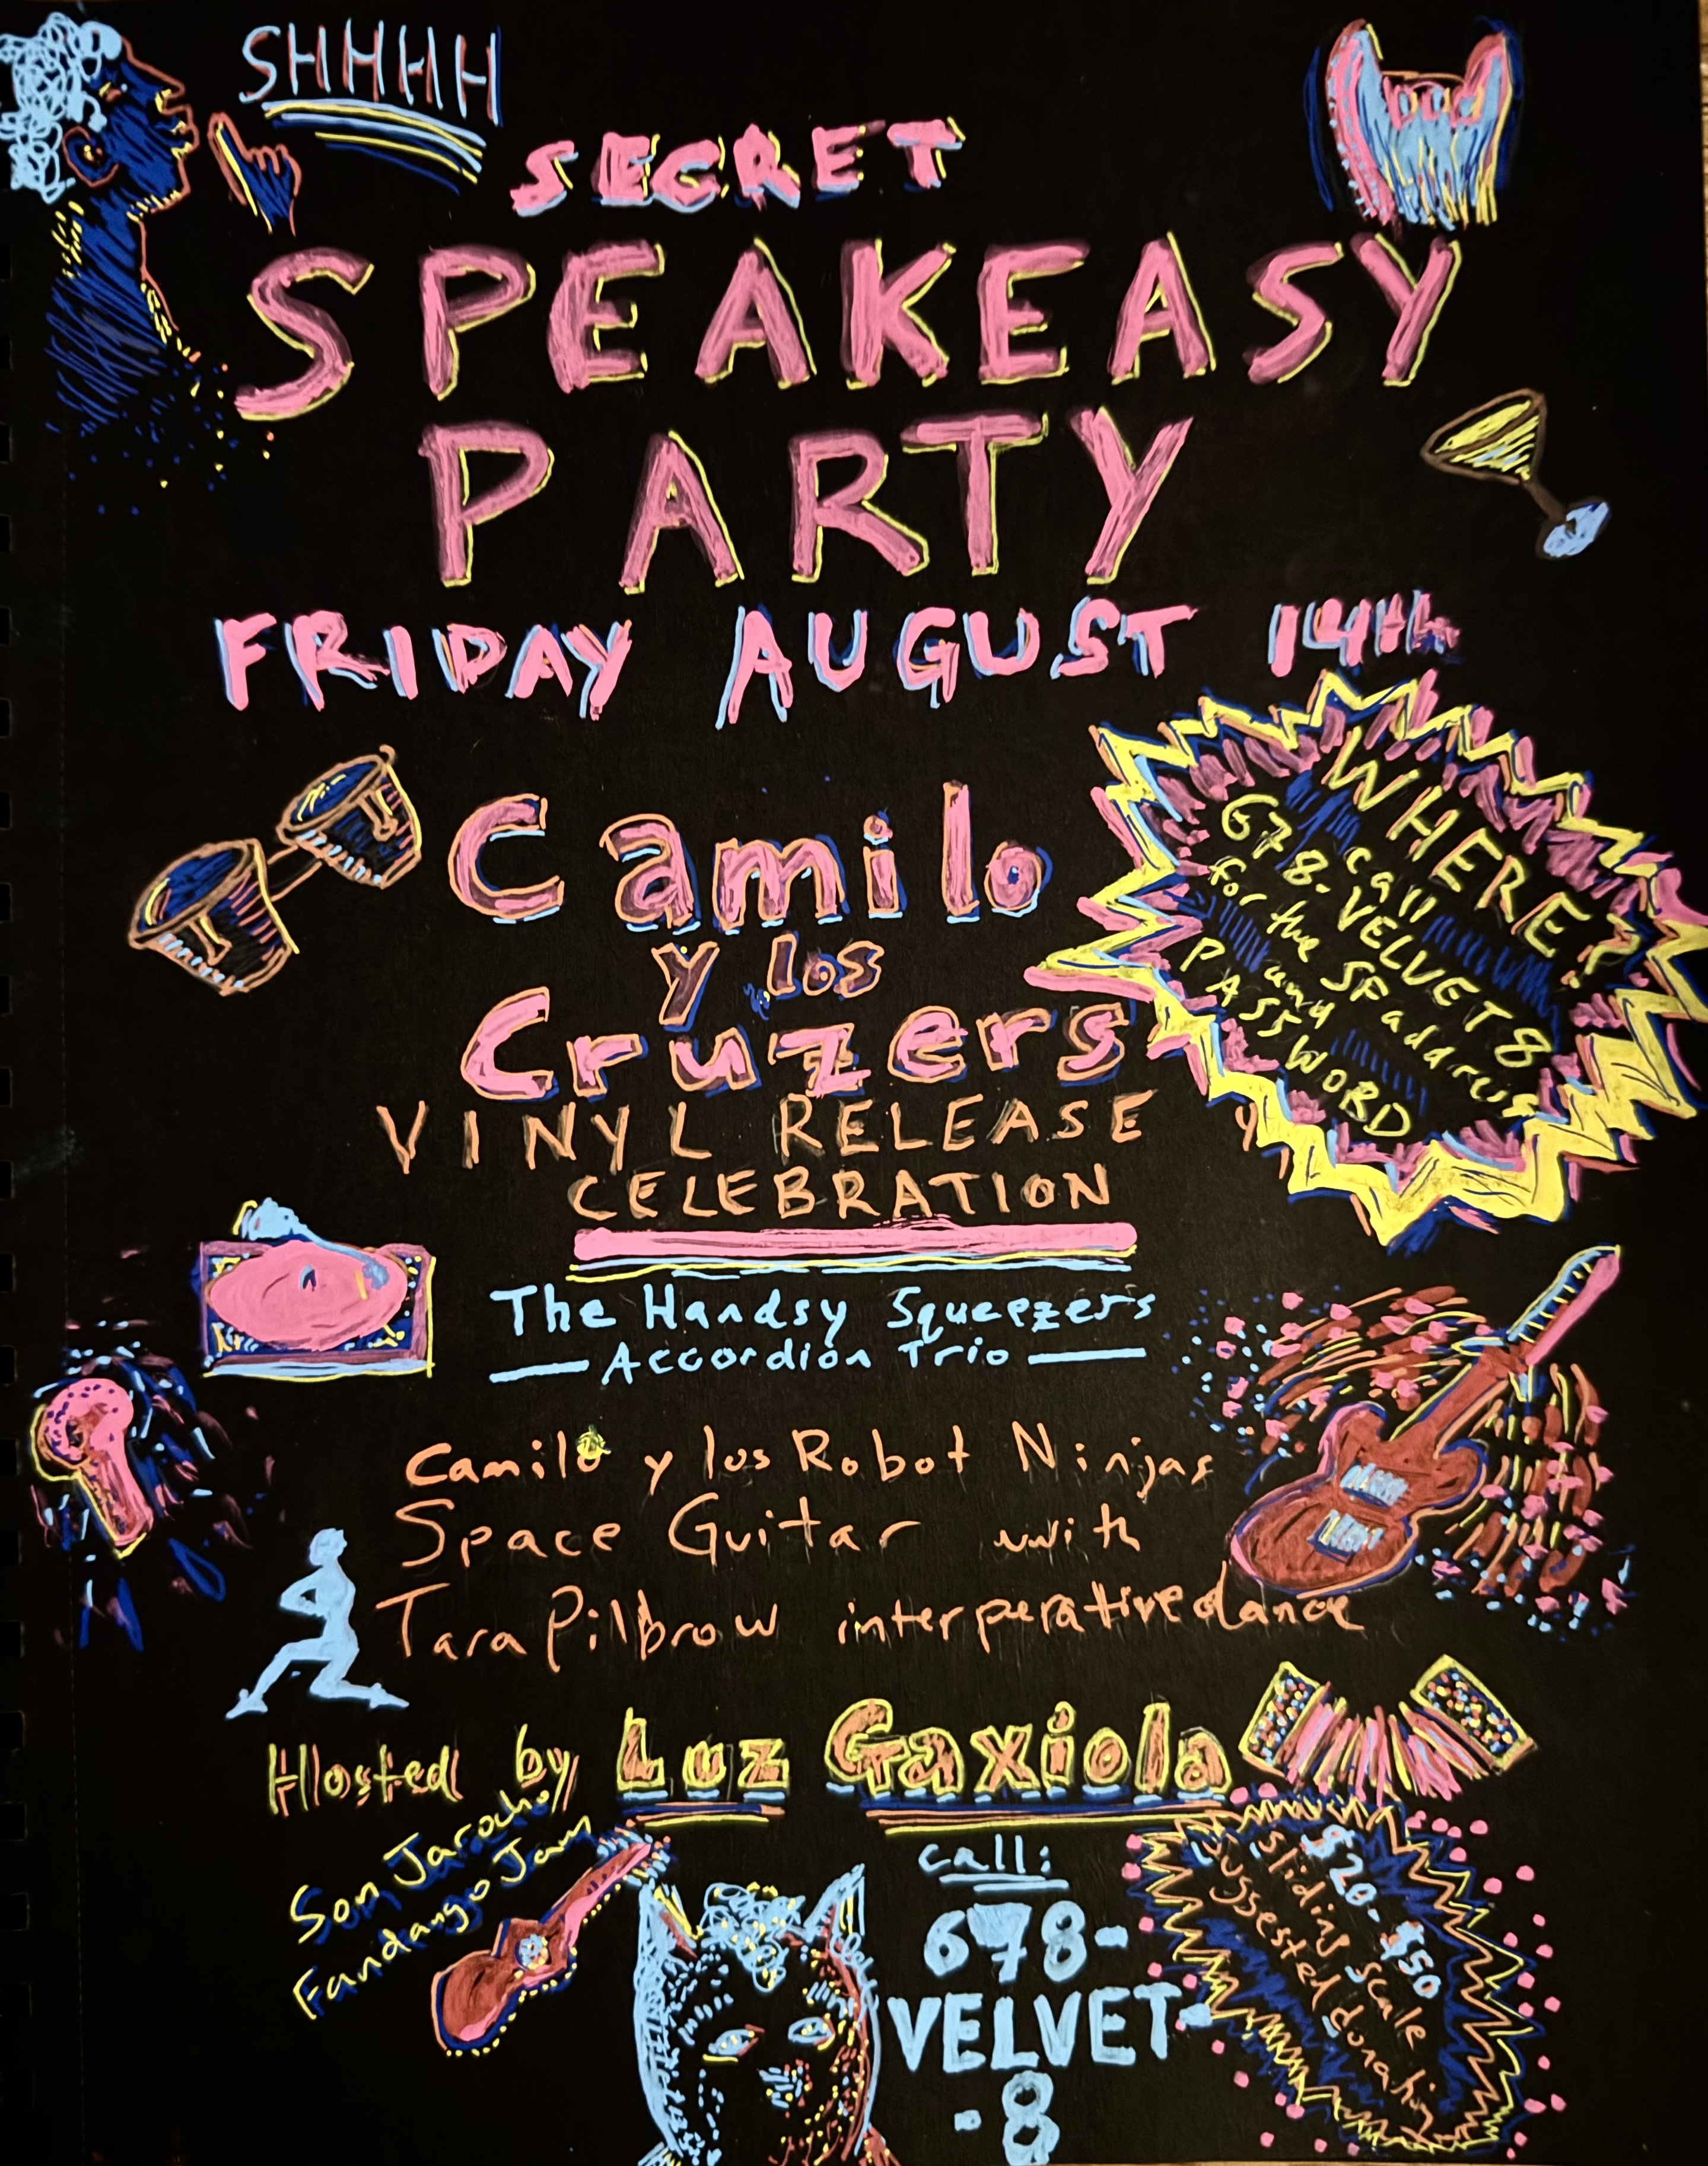 SHHHH
SECRET
SPEAKEASY
PARTY
FRIDAY AUGUST 14th
WHERE?
call
678-VELVET8
for the SF address
and
PASSWORD
Camilo
y los
Cruzers
VINYL RELEASE
CELEBRATION
The Handsy Squeezers
Accordion Trio
Camilo y los Robot Ninjas
Space Guitar with
Tara Pilbrow interperative dance
Hosted by Luz Gaxiola
Son Jarocho
Fandango Jam
call:
678-
VELVET-
-8
$20-$50
sliding scale
suggested donation